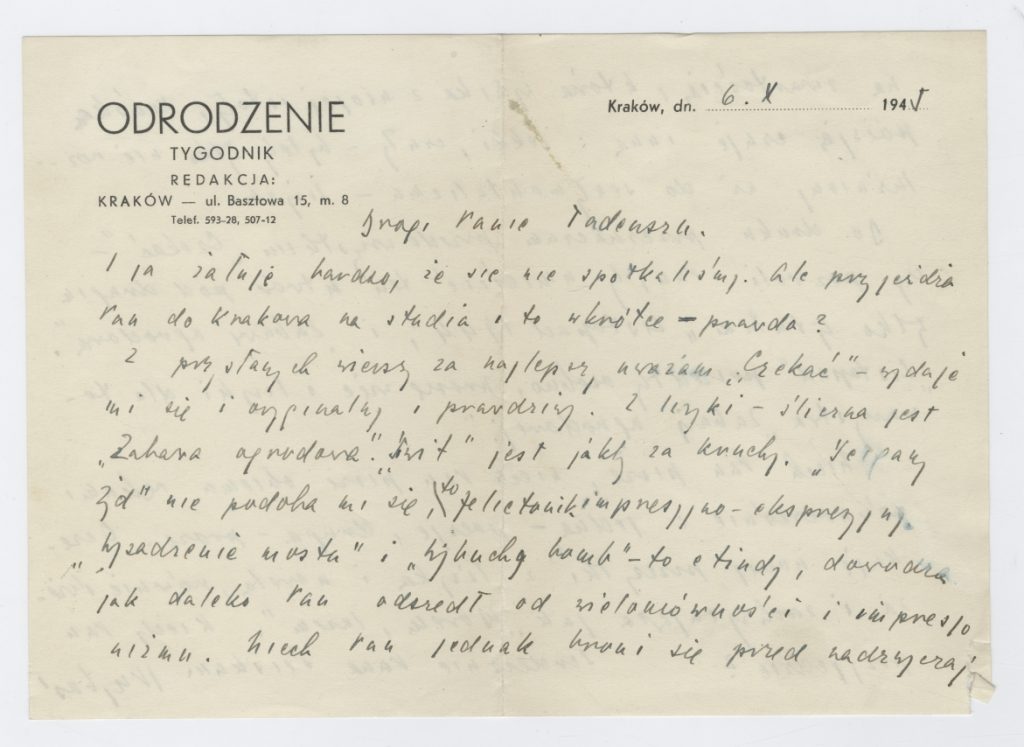 ODRODZENIE
TYGODNIK
REDAKCJA:
KRAKÓW — ul. Basztowa 15, m. 8
Telef. 593-28, 507-12
Kraków, dn. 6. X 1945
Drogi Panie Tadeuszu.
I ja żałuję bardzo, że się nie spotkaliśmy. Ale przyjeżdża
Pan do Krakowa na studia i to wkrótce – prawda?
Z przysłanych wierszy za najlepszy uważam „Czekać" – wydaje
mi się i oryginalny i prawdziwy. Z liryki – śliczna jest
„Zabawa ogrodowa". „Świt" jest jakby za kruchy. „Ścigany
Żyd" nie podoba mi się, to felietonik impresyjno-ekspresyjny.
„Wysadzenie mostu" i „Wybuchy bomb" – to etiudy, dowodzą
jak daleko Pan odszedł od wielomówności i impresjo
nizmu. Niech Pan jednak broni się przed nadzwyczaj